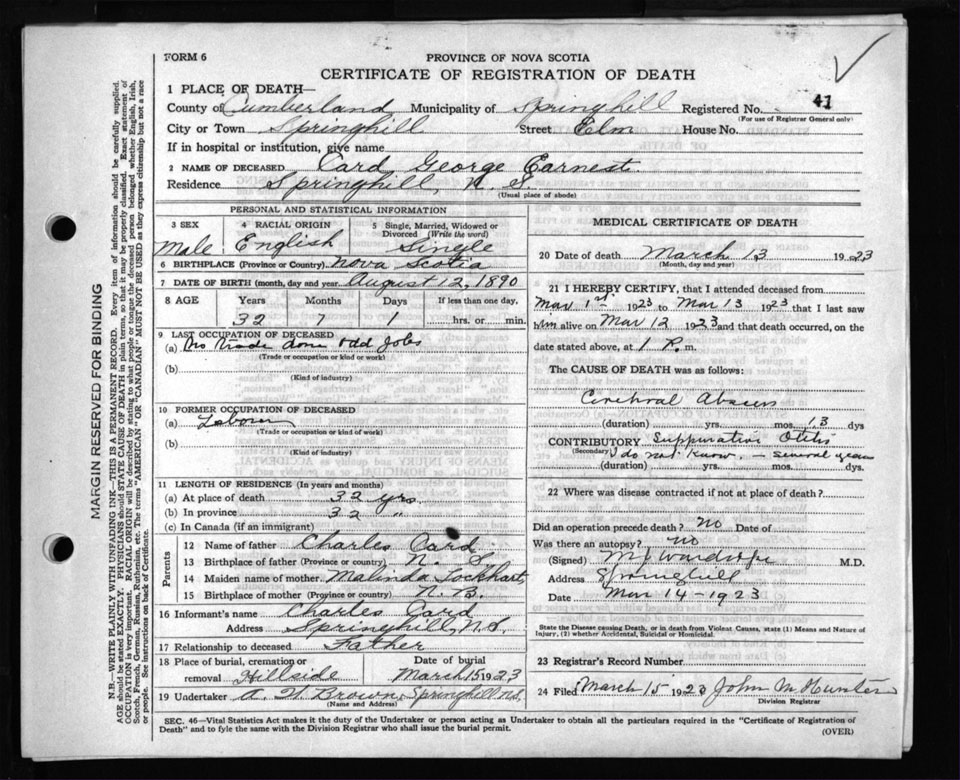 FORM 6
PROVINCE OF NOVA SCOTIA
CERTIFICATE OF REGISTRATION OF DEATH
1 PLACE OF DEATH—
County of Cumberland Municipality of Springhill Registered No. 41
(For use of Registrar General only)
City or Town Springhill Street Elm House No.
If in hospital or institution, give name
2 NAME OF DECEASED Card George Earnest
Residence Springhill, N. S.
(Usual place of abode)
PERSONAL AND STATISTICAL INFORMATION
3 SEX 4 RACIAL ORIGIN 5 Single, Married, Widowed or Divorced (Write the word)
Male English Single
6 BIRTHPLACE (Province or Country) Nova Scotia
7 DATE OF BIRTH (month, day and year) August 12, 1890
8 AGE Years Months Days If less than one day,
32 7 1 hrs. or min.
9 LAST OCCUPATION OF DECEASED
(a) No trade done odd jobs
(Trade or occupation or kind or work)
(b)
(Kind of industry)
10 FORMER OCCUPATION OF DECEASED
(a) Laborer
(Trade or occupation or kind or work)
(b)
(Kind of industry)
11 LENGTH OF RESIDENCE (In years and months)
(a) At place of death 32 yrs.
(b) In province 32 "
(c) In Canada (if an immigrant)
Parents
12 Name of father Charles Card
13 Birthplace of father (Province or country) N. S.
14 Maiden name of mother Malinda Lockhart
15 Birthplace of mother (Province or country) N. B.
16 Informant's name Charles Card
Address Springhill, N.S.
17 Relationship to deceased Father
18 Place of burial, cremation or removal Hillside Date of burial March 15 1923
19 Undertaker A. W. Brown, Springhill N.S.
(Name and Address)
MEDICAL CERTIFICATE OF DEATH
20 Date of death March 13 1923
(Month, day and year)
21 I HEREBY CERTIFY, that I attended deceased from
Mar 1st 1923 to Mar 13 1923 that I last saw
him alive on Mar 12 1923 and that death occurred, on
date stated above, at 1 P. m.
The CAUSE OF DEATH was as follows:
Cerebral Abscess
(duration) yrs. mos. 13 dys
CONTRIBUTORY Suppurative Otitis
(Secondary) I do not know. – several years
(duration) yrs. mos. dys.
22 Where was disease contracted if not at place of death?
Did an operation precede death? no Date of
Was there an autopsy? no
(Signed) M.D.
Address Springhill
Date Mar 14 - 1923
State the Disease causing Death, or in Death from Violent Causes, state (1) Means and Nature of
Injury, (2) whether Accidental, Suicidal or Homicidal.
23 Registrar's Record Number
24 Filed March 15 1923 John M Hunter
Division Registrar
SEC. 46—Vital Statistics Act makes it the duty of the Undertaker or person acting as Undertaker to obtain all the particulars required in the "Certificate of Registration of
Death" and to fyle the same with the Division Registrar who shall issue the burial permit.
(OVER)
MARGIN RESERVED FOR BINDING
N.B.—WRITE PLAINLY WITH UNFADING INK—THIS IS A PERMANENT RECORD. Every item of information should be carefully supplied.
AGE should be stated EXACTLY. PHYSICIANS should STATE CAUSE OF DEATH in plain terms, so that it may be properly classified. Exact statement of
OCCUPATION is very important. RACIAL ORIGIN will be described by stating to what people or tongue the deceased person belonged whether English, Irish,
Scotch, French, German, Russian, Ruthenian, etc. The terms "AMERICAN" OR "CANADIAN" MUST NOT BE USED as they express citizenship but not a race
or people. See instructions on back of Certificate.